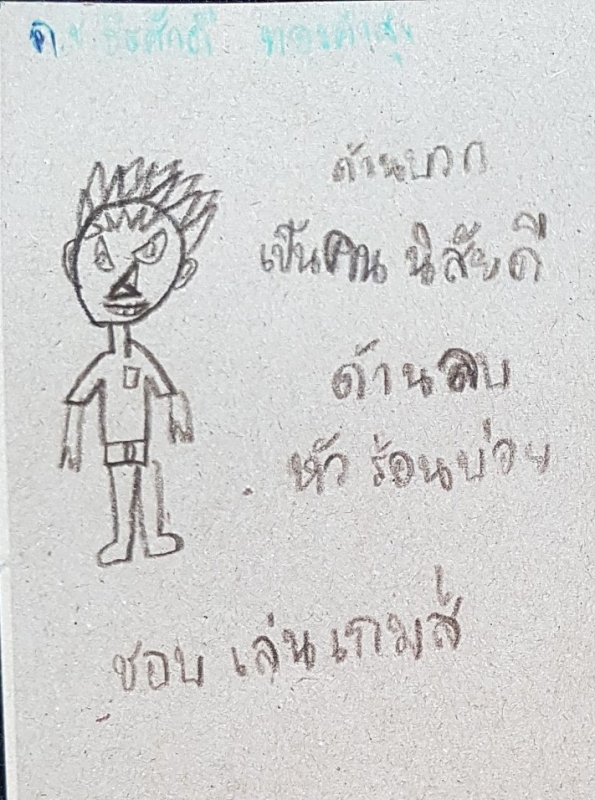 ด.ช. ธีรศักดิ์
ด้านบวก
เป็นคน นิสัยดี
ด้านลบ
หัว ร้อนบ่อย
ชอบ เล่น เกมส์